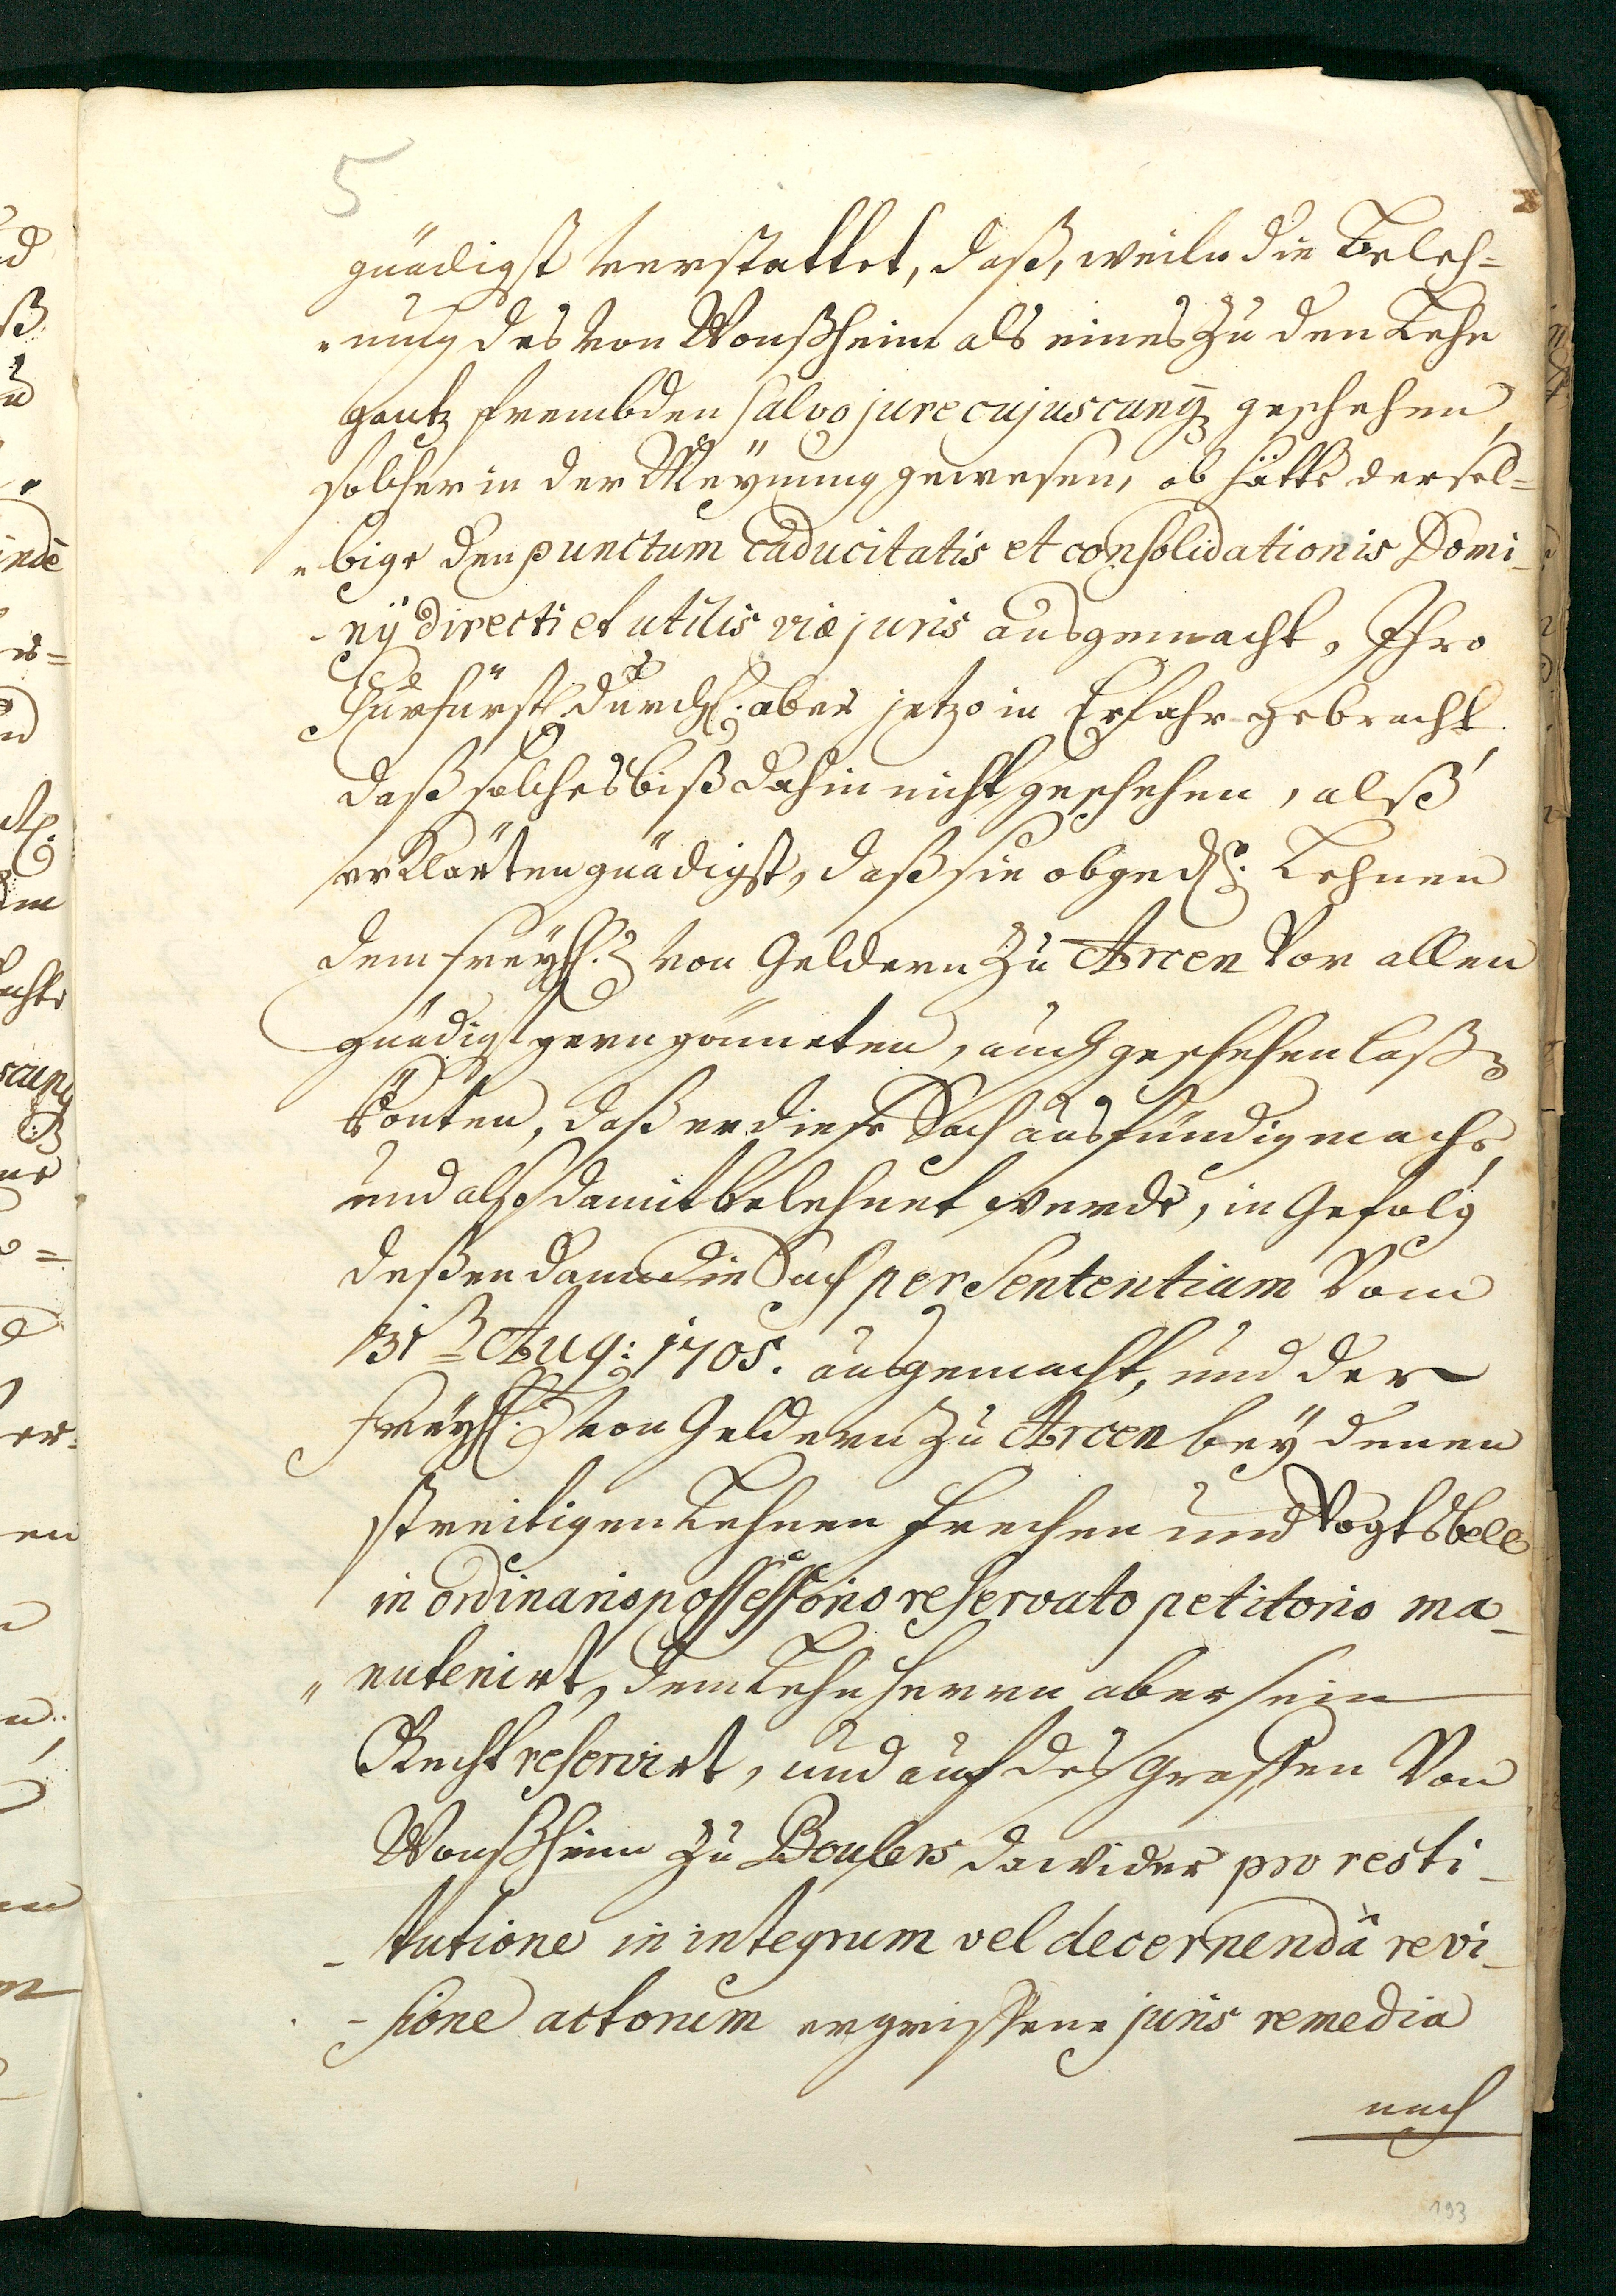 5
gnädigst verstattet, daß, weiln die Beleh=
"nung des von Wonßheim als eines zu den Lehn
gantz frembden salvo jure cujuscunq geschehen,
solcher in der Meÿnung gewesen, ob hätte dersel=
"bige den punctum caducitatis et consolidationis Domi-
-nÿ directi et utilis viæ juris ausgemacht, Ihro
Churfürstl. Durchl: aber jetzo in Erfahr gebracht
daß solches biß dahin nicht geschehen, alß
erklärten gnädigst, daß sie obged: Lehnen
dem Freÿh: von Geldern zu Arcen vor allen
gnädigst gern gönneten, auch geschehen laßen
könten, daß er diese Sach ausfündig mache,
und also damit belehnet werde, in Gefolg
deßen dann die Sach per Sententiam vom
31 Aug: 1705. ausgemacht, und der
Freÿh: von Geldern zu Arcen beÿ denen
streitigen Lehnen Frechen und Vogtsbell
in ordinario possessorio reservato petitorio ma-
"nutenirt, dem Lehnherrn aber sein
Recht reservirt, und auf des Graffen von
Wonßheim zu Boulers dawider pro resti-
-tutione in integrum vel decernendâ revi-
-sione actorum ergriffene juris remedia
nach
193